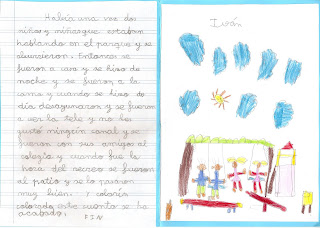 Había una vez dos
niños y niñas que estaban
hablando en el parque y se
divirtieron. Entonces se
fueron a casa y se hizo de
noche y se fueron a la
cama y cuando se hizo de
día desayunaron y se fueron
a ver la tele y no les
gustó ningún canal y se
fueron con sus amigos al
colegio y cuando fue la
hora del recreo se fueron
al patio y se lo pasaron
muy bien. Y colorín
colorado este cuento se ha
acabado. FIN
Iván